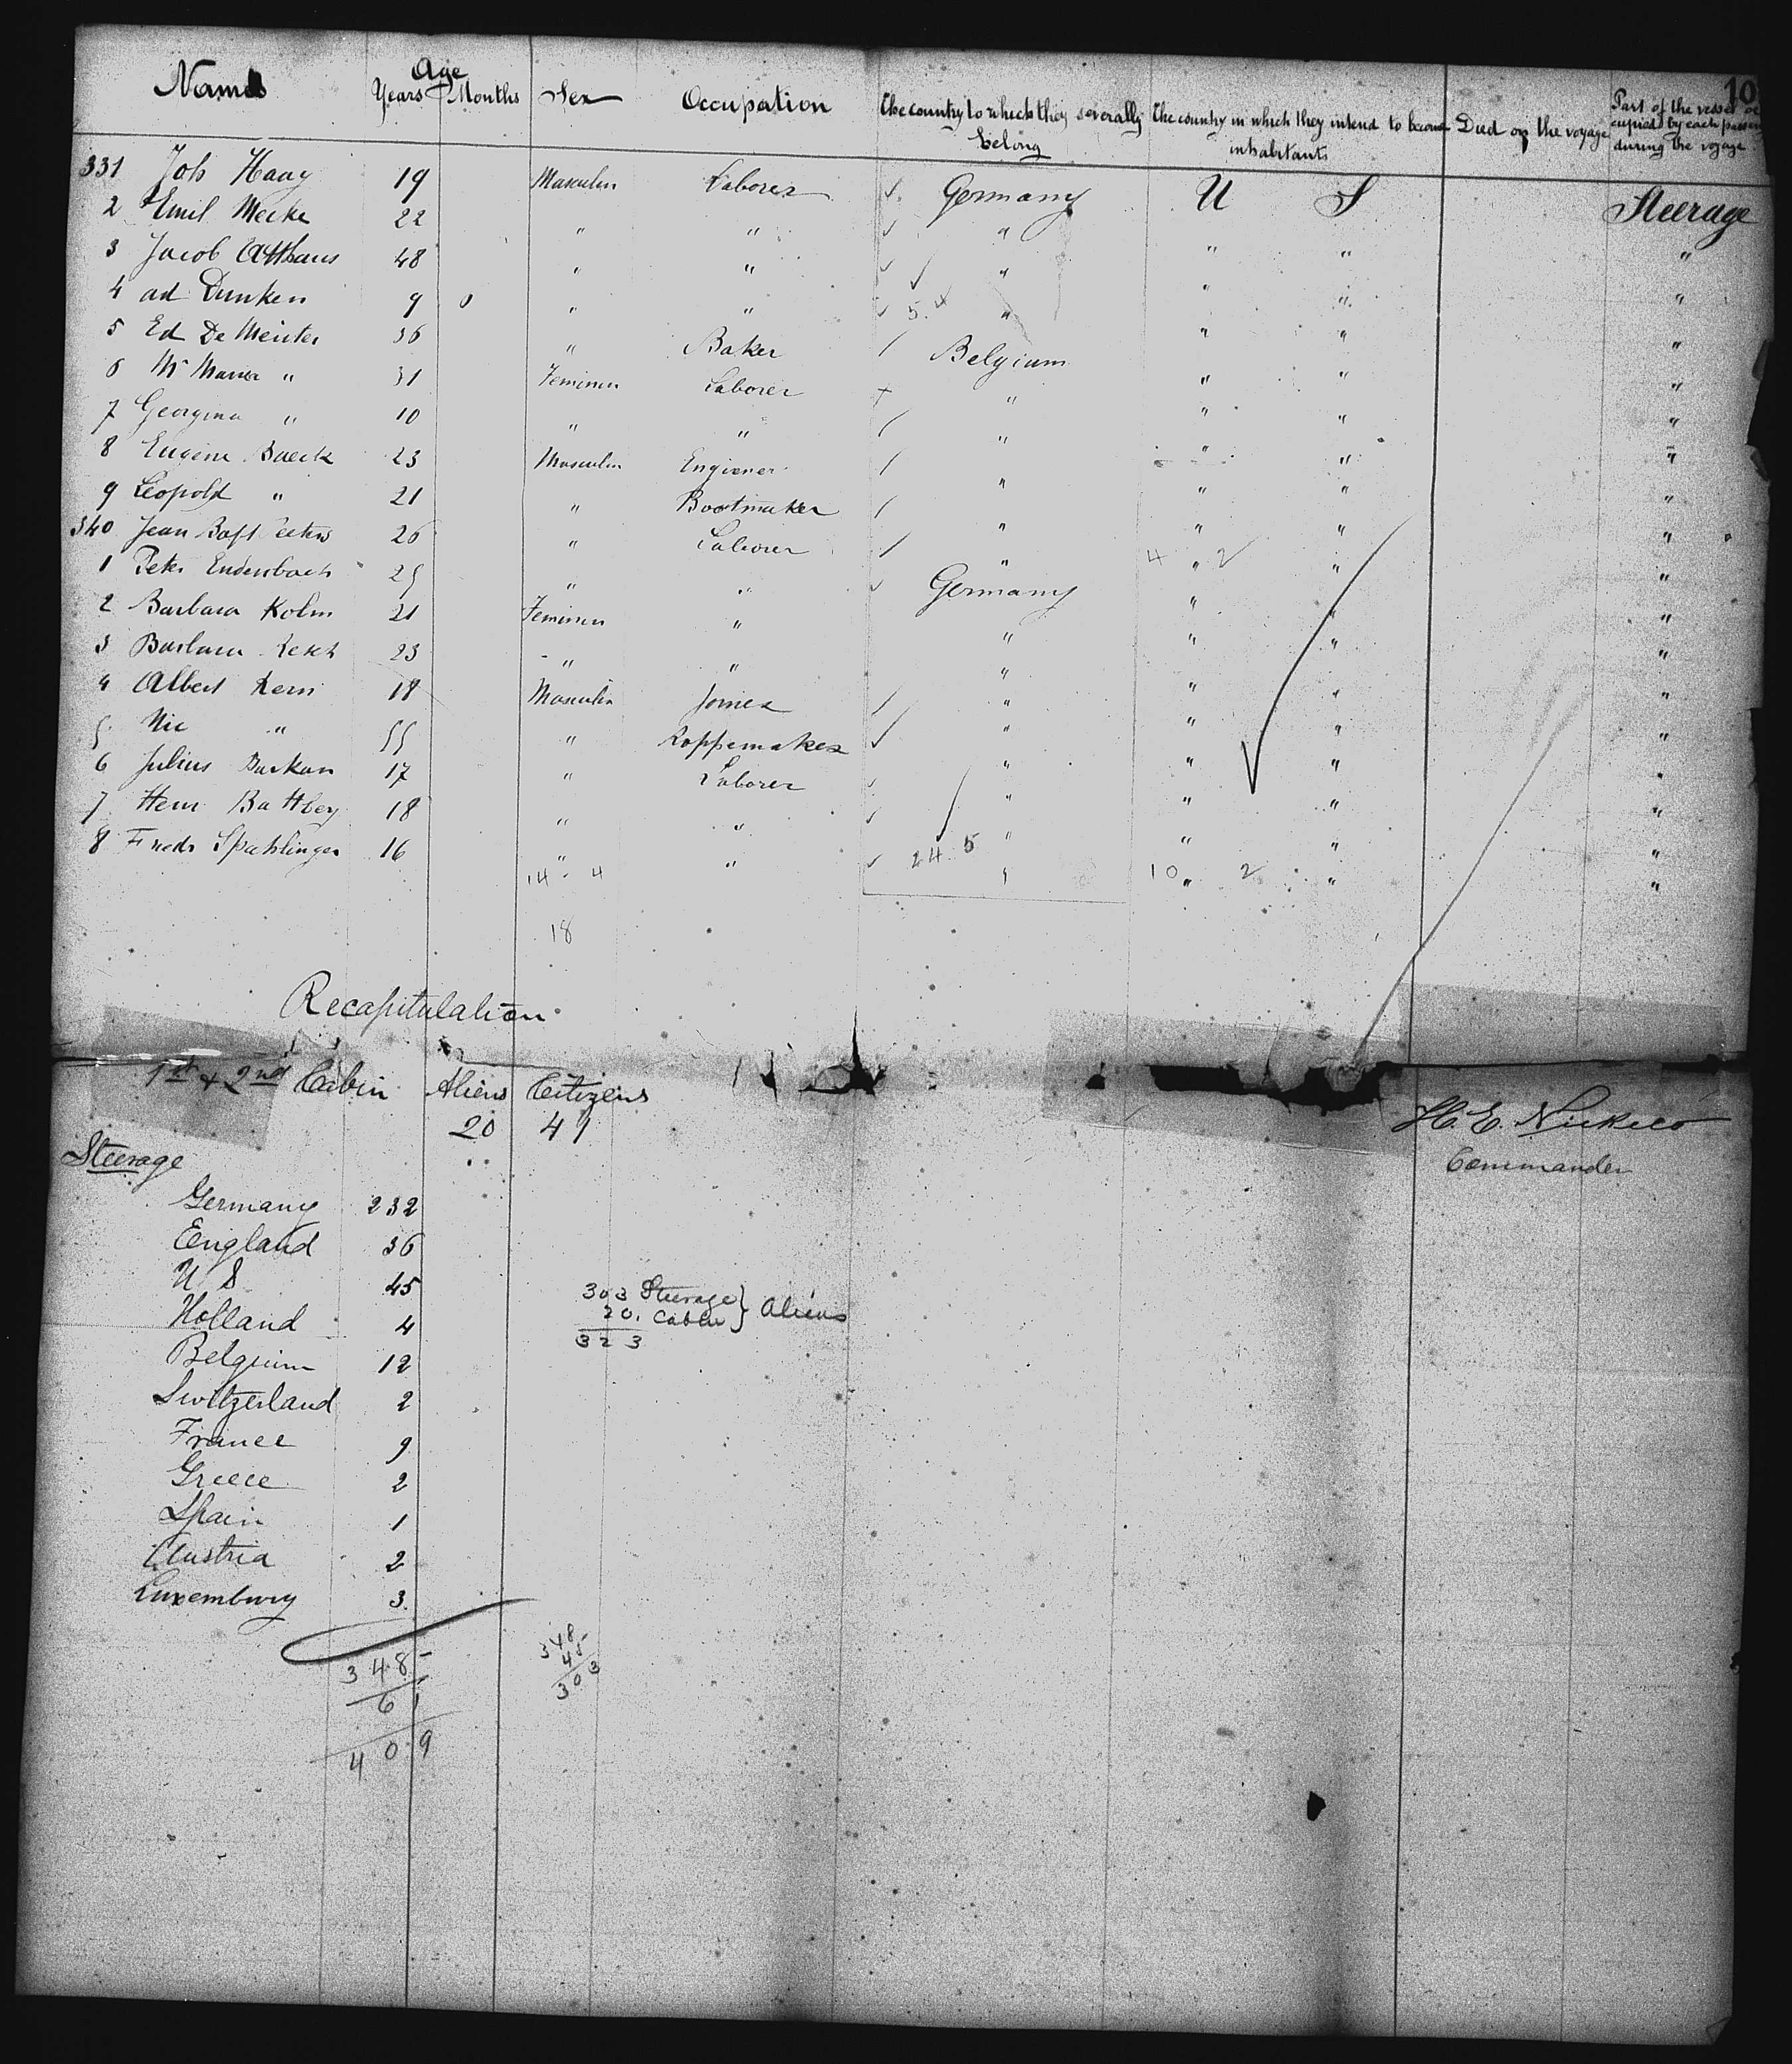 10
Names Age Years Months Sex Occupation The country to which they severally belong The country in which they intend to become inhabitants Died on the voyage Part of the vessel occupied by each passen during the voyage
331 Joh Haag 19 Masculin Laborer Germany U S Steerage
2 Emil Merke 22 " " " " " "
3 Jacob Atthaus 48 " " " " " "
4 ad Dunken 9 0 " " 5. 4 " " " "
5 Ed De Meister 36 " Baker Belgium " " "
6 Mr Maria " 31 Feminin Laborer " " " "
7 Georgina " 10 " " " " " "
8 Eugene Baeck 23 Masculin Engiener " " " "
9 Leopold " 21 " Bootmaker " " " "
340 Jean Bapt 26 " Laborer " 4 " 2 " "
1 Peter Endenbach 25 " " Germany " " "
2 Barbara Kolm 21 Feminin " " " " "
3 Barbara 23 " " " " " "
4 Albert Kern 18 Masculin Joiner " " " "
5 Nic " 55 " Koppemaker " " " "
6 Julius Barkan 17 " Laborer " " " "
7 Henr Battbey 18 " " " " " "
8 Fredr Spahlinger 16 " " 24 5 " " " "
14 - 4 10 2
18
Recapitulation
1st & 2nd Cabin Aliens Citizens
20 41
H. E. Nickels
Commander
Steerage
Germany 232
England 36
U S 45
Holland 4
Belgium 12
Switzerland 2
France 9
Greece 2
Spain 1
Austria 2
Luxemburg 3
303 Steerage } Aliens
20. Cabin
323
348
61
409
348
45
303